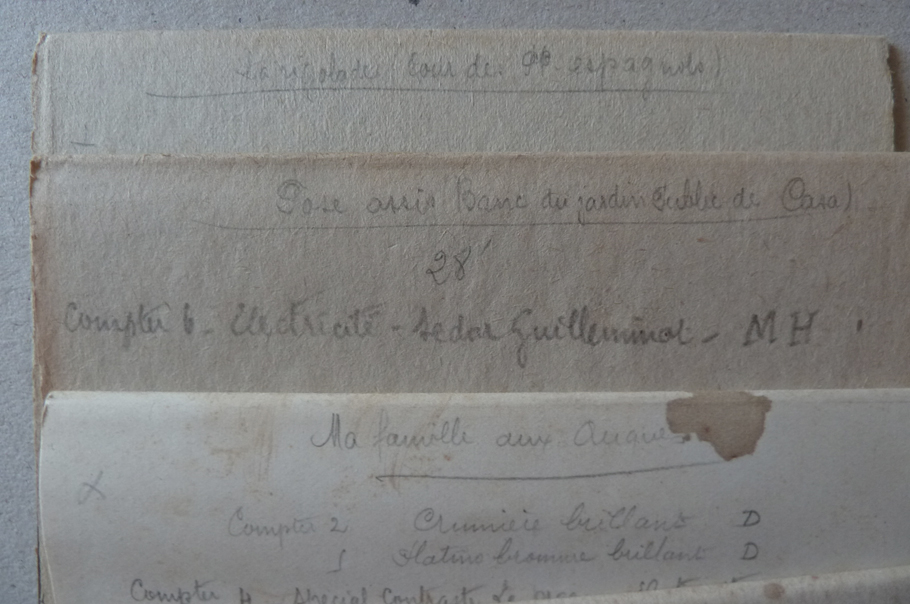 La rigolade (Cour des PP. espagnols)
Pose assis (Banc du jardin Public de Casa)
28'
Compter 6 - Electricité - Sedar Guilleminot - M H
Ma famille aux
Compter 2 Crumière brillant D
Platino bromure brillant D
Compter 4 Special Contraste